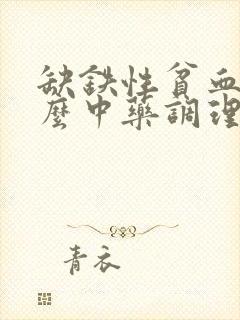 缺鉄性貧血
麼中藥調理
青衣